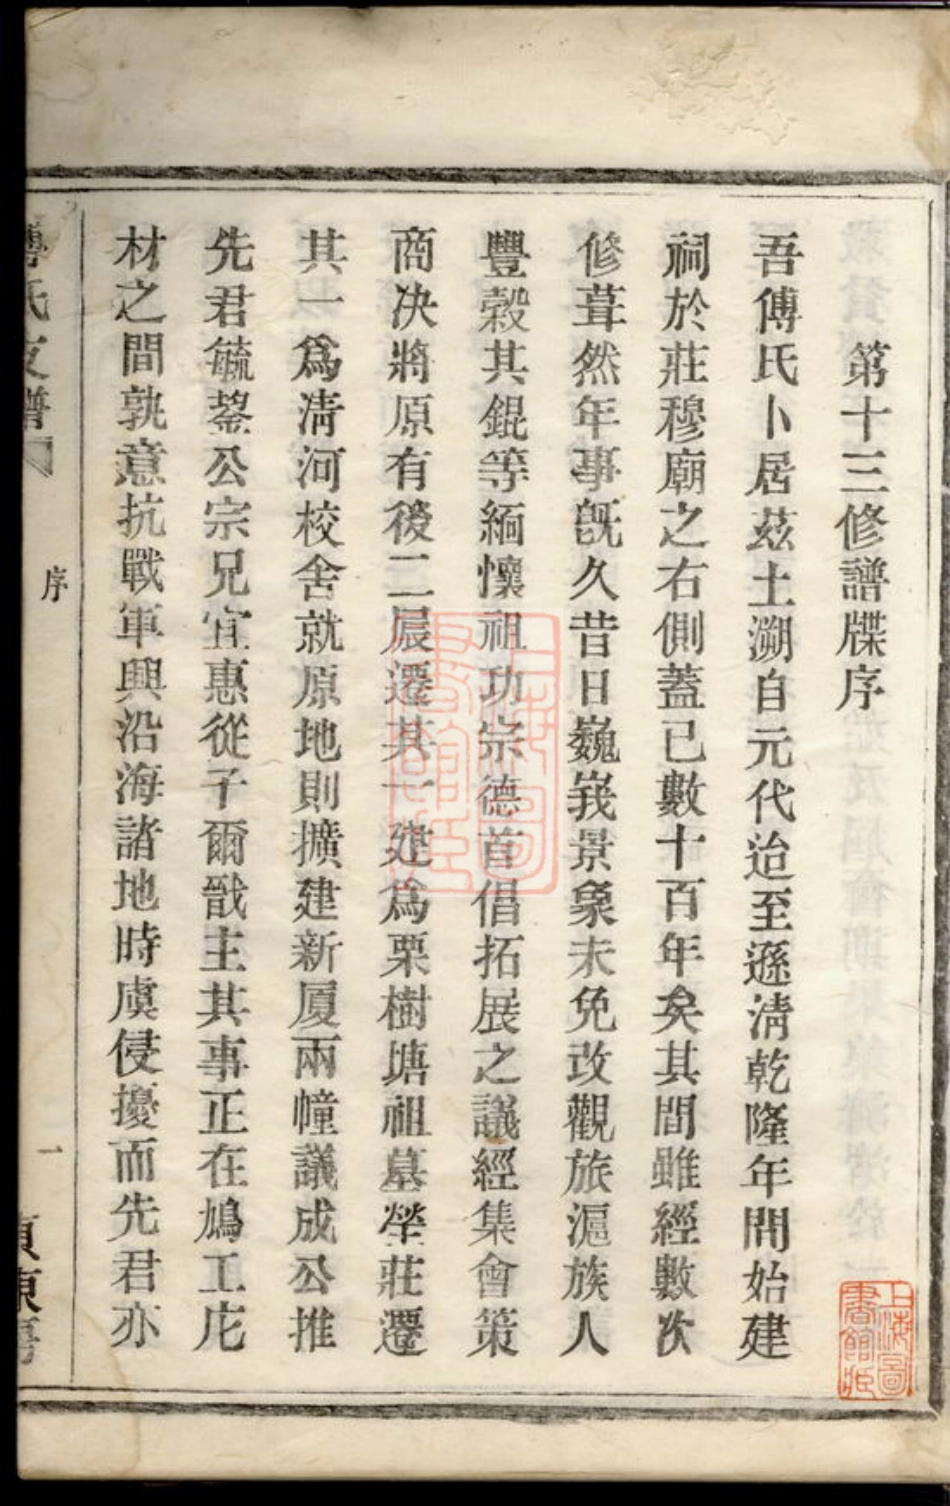 第十三修譜牒序
吾傅氏卜居茲土溯自元代迨至遜清乾隆年間始建
祠於莊穆廟之右側蓋已數十百年矣其間雖經數次
修葺然年事旣久昔日巍峩景象未免改觀旅滬族人
豐穀其錕等緬懷祖功宗德首倡拓展之議經集會策
商决將原有後二晨遷其一建爲栗樹塘祖墓塋莊遷
其一爲淸河校舍就原地則擴建新厦兩幢議成公推
先君毓蓥公宗兄宜惠從子爾戩主其事正在鳩工庀
材之間孰意抗戰軍興沿海諸地時虞侵擾而先君亦
氏支譜
序
一
上海圖書館藏
上海圖書館藏